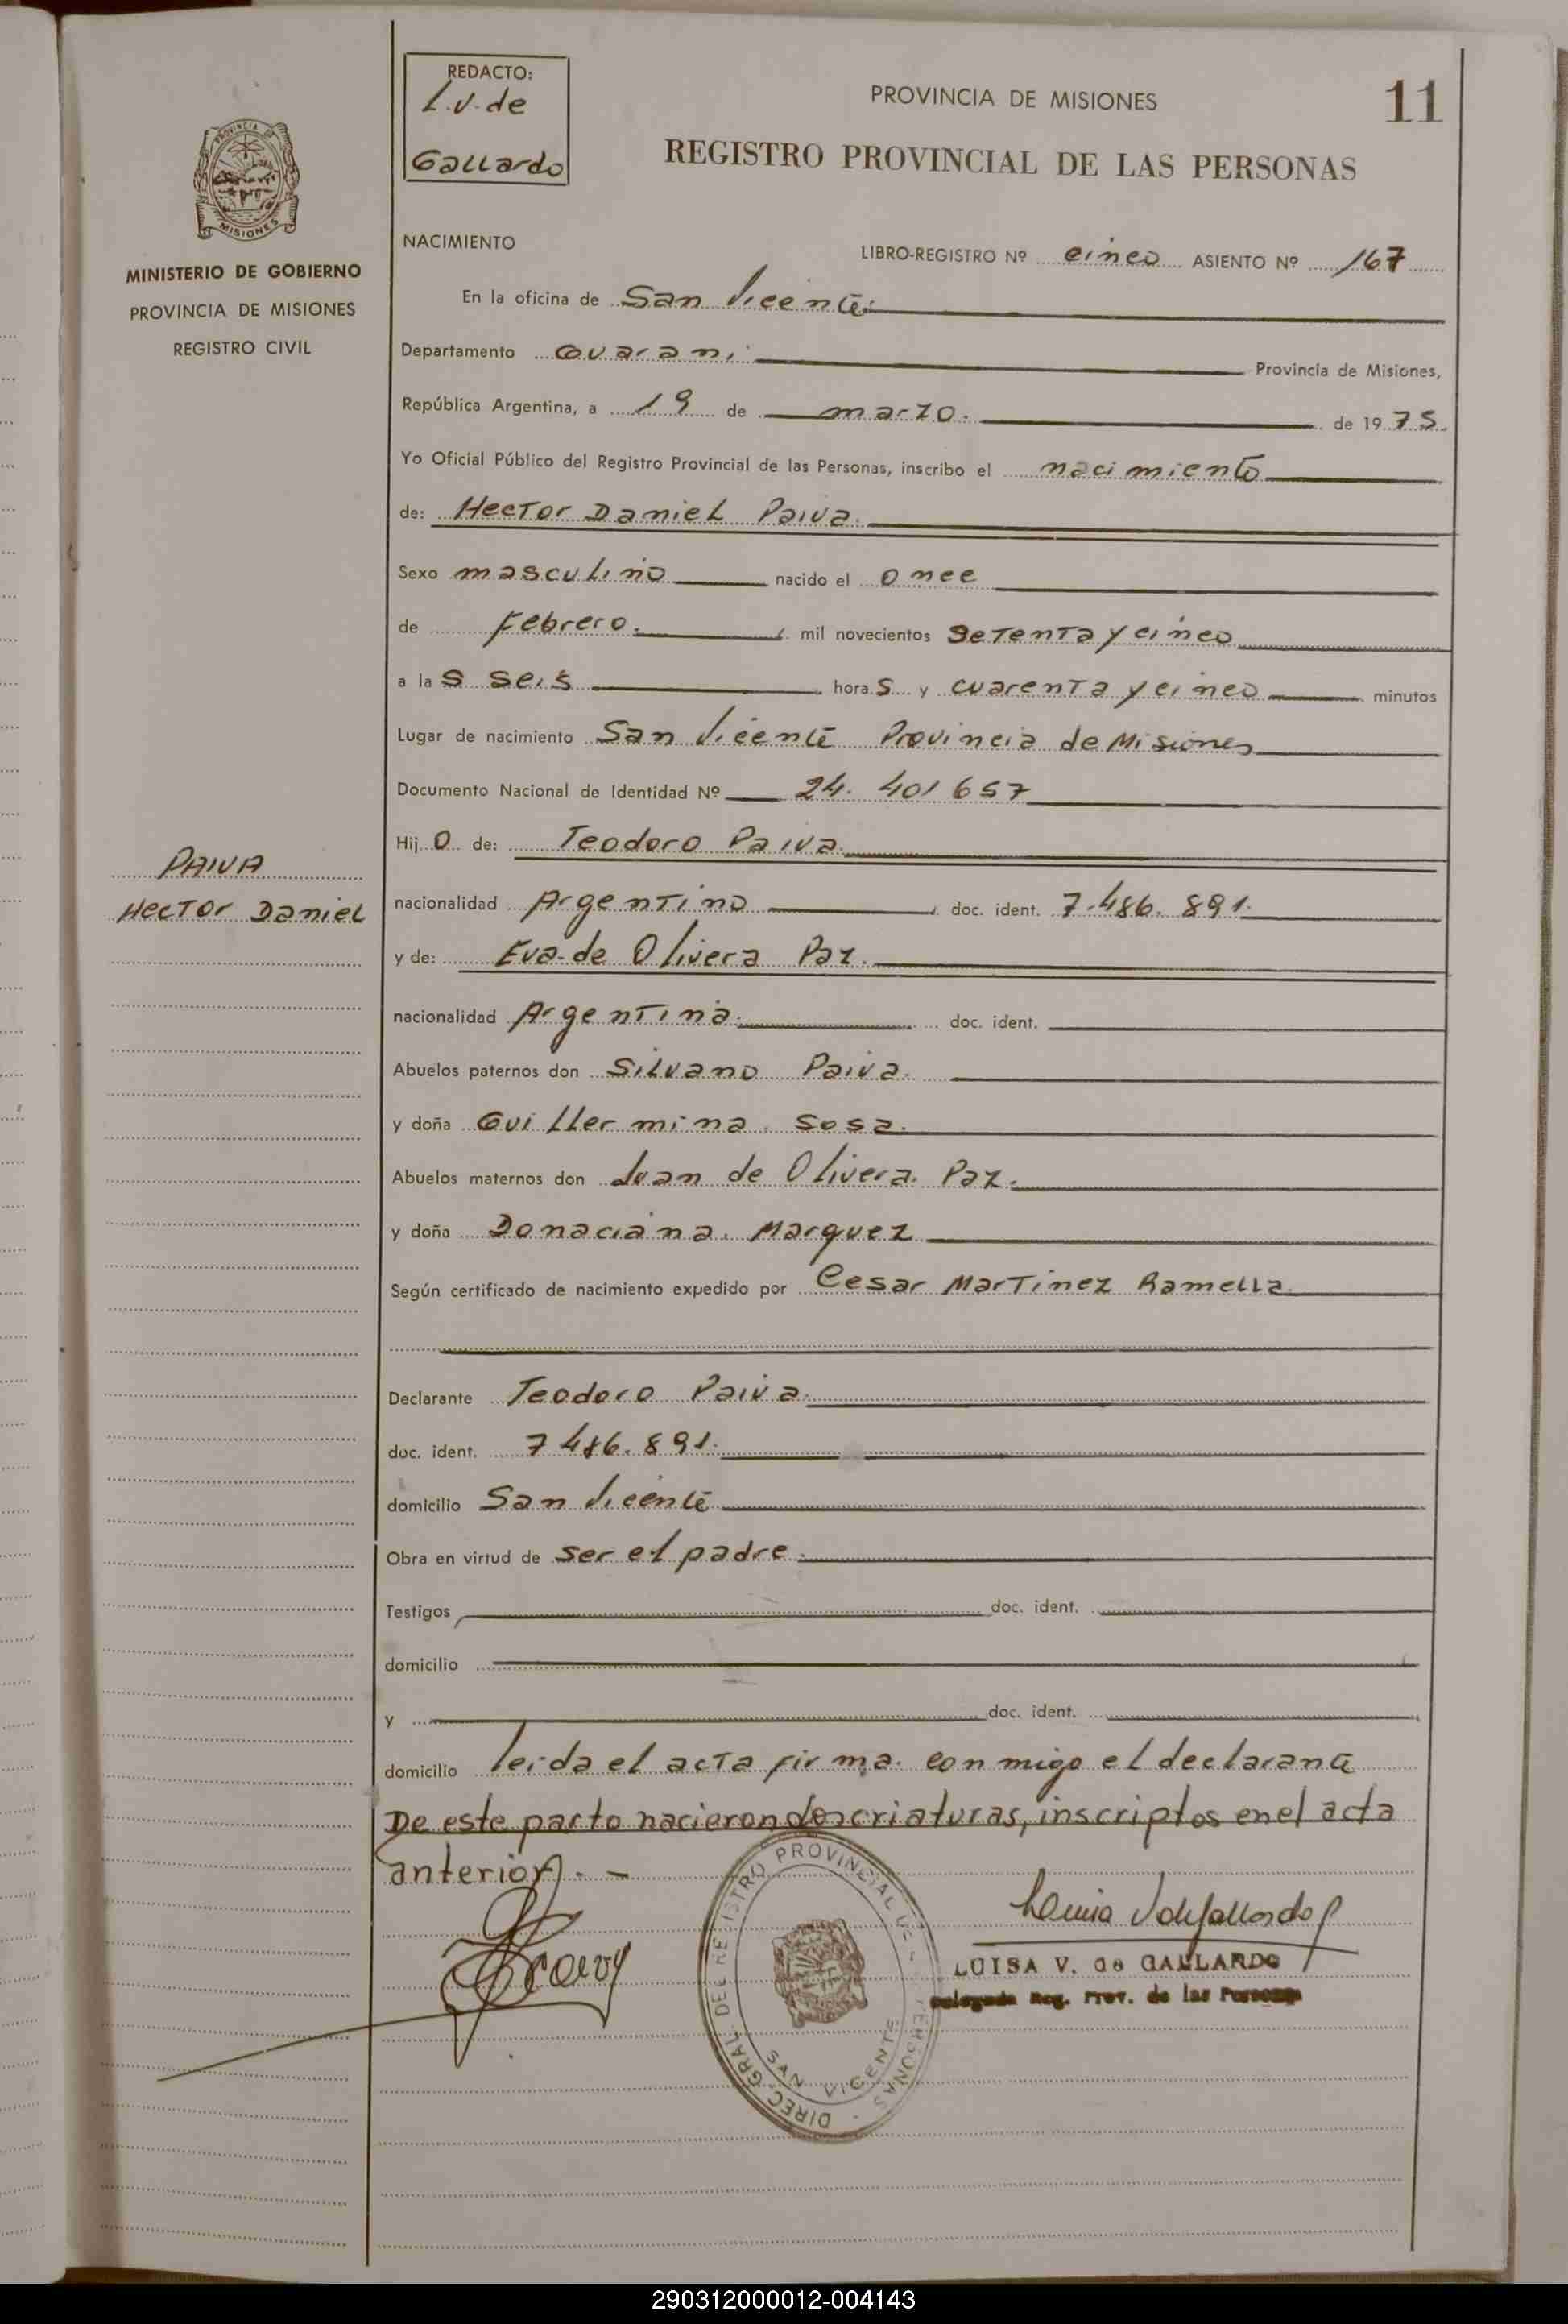 REDACTO:
L.V. de
Gallardo
PROVINCIA DE MISIONES
11
REGISTRO PROVINCIAL DE LAS PERSONAS
PROVINCIA DE
MISIONES
MINISTERIO DE GOBIERNO
PROVINCIA DE MISIONES
REGISTRO CIVIL
NACIMIENTO
LIBRO-REGISTRO Nº cinco ASIENTO Nº 167
En la oficina de San Vicente.
Departamento Guarani Provincia de Misiones,
República Argentina, a 19 de marzo. de 1975.
Yo Oficial Público del Registro Provincial de las Personas, inscribo el nacimiento
de: Hector Daniel Paiva.
Sexo masculino nacido el once
de Febrero. mil novecientos setenta y cinco
a las seis horas y cuarenta y cinco minutos
Lugar de nacimiento San Vicente Provincia de Misiones
Documento Nacional de Identidad Nº 24. 401 657
Hijo de: Teodoro Paiva.
PAIVA
Hector Daniel
nacionalidad Argentino doc. ident. 7.486.891.
y de: Eva de Olivera Paz.
nacionalidad Argentina. doc. ident.
Abuelos paternos don Silvano Paiva.
y doña Guillermina Sosa.
Abuelos maternos don Juan de Olivera Paz.
y doña Donaciana Marquez
Según certificado de nacimiento expedido por Cesar Martinez Ramella.
Declarante Teodoro Paiva.
doc. ident. 7 486.891.
domicilio San Vicente
Obra en virtud de ser el padre.
Testigos doc. ident.
domicilio
y doc. ident.
domicilio leida el acta firma conmigo el declarante
De este parto nacieron dos criaturas, inscriptos en el acta
anterior. -
DIREC. GRAL. DEL REGISTRO PROVINCIAL DE LAS PERSONAS
SAN VICENTE
LUISA V. de GALLARDO
Delegada Reg. Prov. de las Personas
290312000012-004143